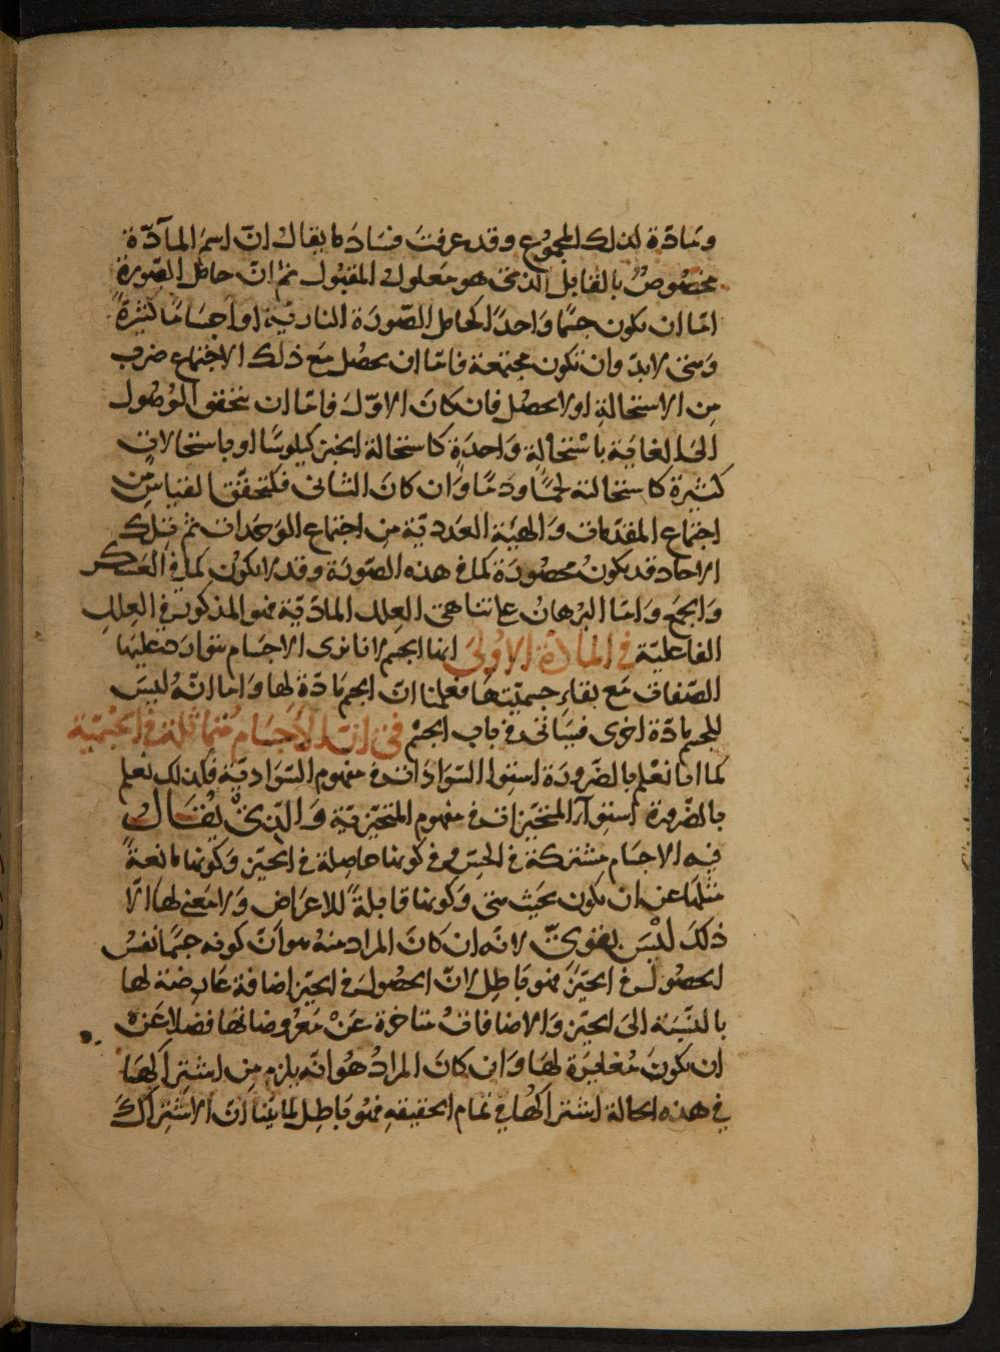 ومادّة لذلك المجموع وقد عرفت فساد ما يقال انّ اسم المآدّة
مخصوص بالقابل الذى هو معلول المقبول ثم انّ حامل الصّورة
امّا ان يكون جسما واحدًا كحامل الصّورة الناريّة او اجسامًا كثيرةً
ومتى لابدّ وان تكون مجتمعة فامّا ان يحصُل مَع ذلك الاجتماع ضرب
مِن الاستحالةِ او لا يحصُل فان كانَ الاوّل فامّا ان يتحقق الوُصُول
الى الغاية باسْتحالةٍ وَاحدَةٍ كاستحالة الخبز كيلوسًا او باستحالات
كثيرة كاستحالته لحمًا ودمًا وَان كانَ الثانى فكتحقّق القياس من
اجتماع المقدّمات وَالهيئة العَدديّة من اجتماع الوَحدات ثم تلك
الاحاد قد يكون محصُورَة كما فى هذه الصّورَة وقد لا يكون كما فى العَسكر
وَالجمع وَامّا البرهان على تناهى العِلل المادّيّة فهو المذكور فى العِلل
الفاعليّة فى المادّة الاولىَ انها الجسم لانا نرى الاجسَام يتوارد عليها
الصّفات مَع بقاءِ جسميّتها فعلمنا انّ الجسم مَادّة لها وَاما انّهُ ليسَ
للجسم مادّة اخرى فسَياتى فى باب الجسْم فى انّ الاجسَام مُتماثلة فى الجسْميّة
كما انا نعْلم بالضّرورَة استوا السّوَادَات فى مفهوم السّوَاديّة فكذلك نعلم
بالضّرورة استوآء المتحيّزات فى مفهوم المتحيّزيّة وَالذىْ يُقَال
فيه الاجسَام مشتركة فى الحِسّ وفى كونها حَاصِلة فى الحيّز وَكونها مانعةً
مثلهَا عن ان يكون بحَيث هى وَكونها قابلةً للاعرَاض وَلا مَعنى لها الّا
ذلكَ ليْسَ بقوىّ لانّه ان كانَ المراد منهُ هو انّ كونه جسمًا نفس
الحصُول فى الحيّز فهو باطِل لانّ الحصُولَ فى الحيّز اضافة عَارضة لها
بالنّسبَة الىَ الحيّز وَالاضافات متاخرة عَنْ مَعرُوضاتها فضلا عَن
ان يكونَ مُغايرَة لهَا وَان كانَ المرادُ هُوَ انّه يلزم من اشتراكهَا
في هذه الحالة اشتراكهُا فى تمام الحقيقةِ فهُو بَاطِل لما بيّنا انّ الاشتِراكَ